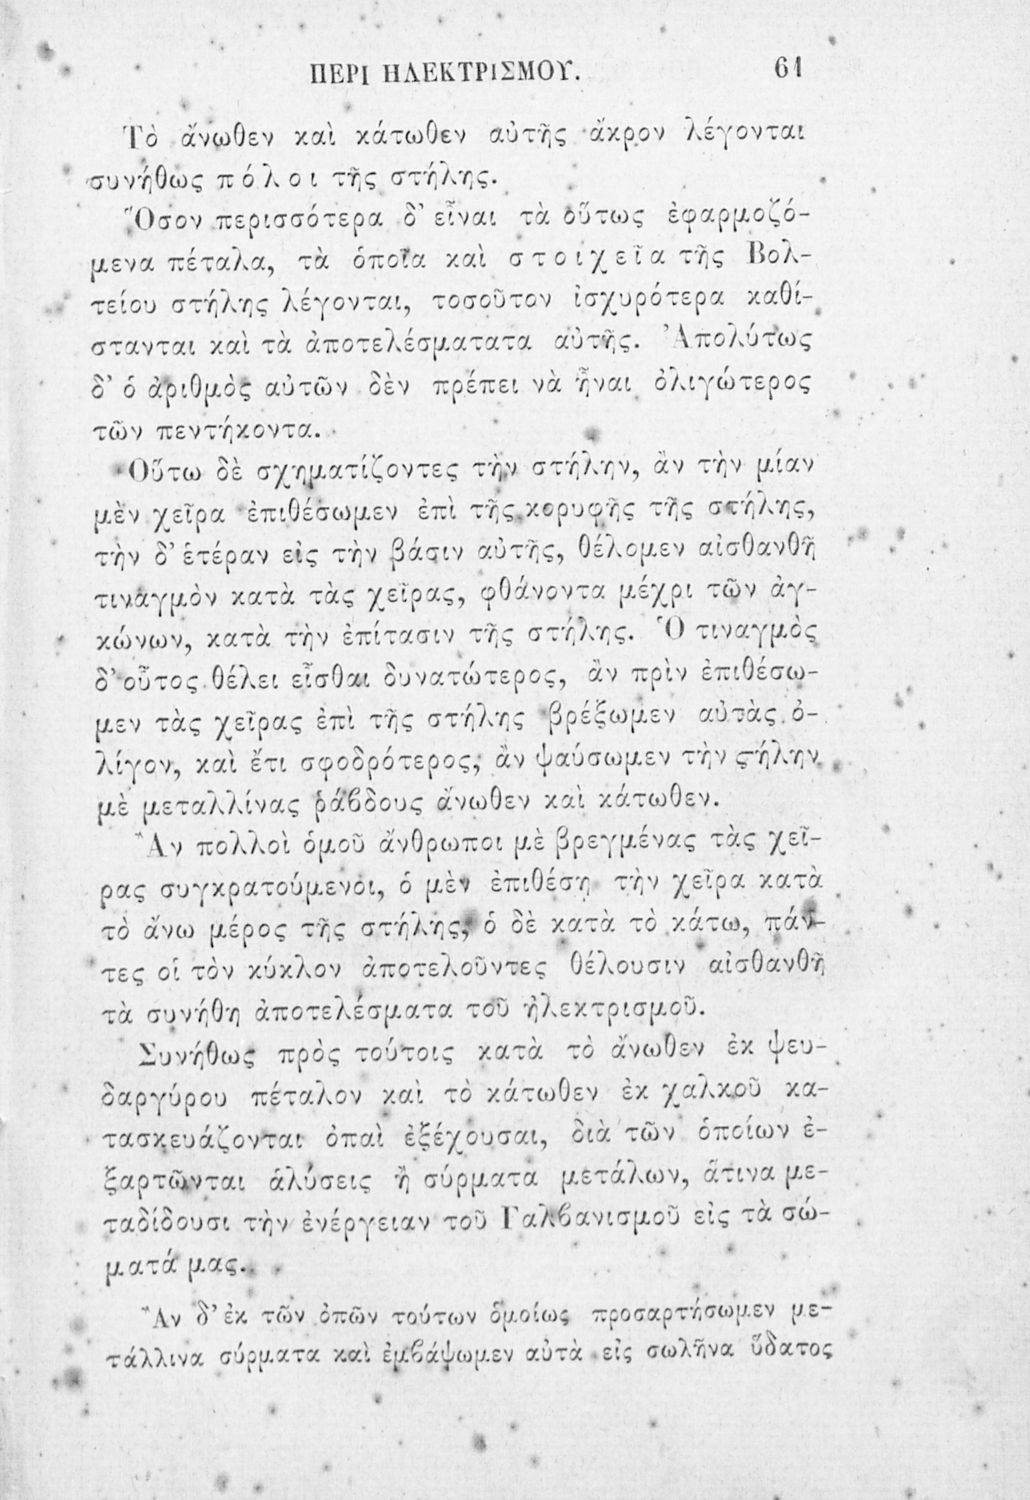 ΠΕΡΙ ΗΛΕΚΤΡΙΣΜΟΥ. 61
Τὸ ἄνωθεν καὶ κάτωθεν αὐτῆς ἄκρον λέγονται
συνήθως πόλοι τῆς στήλης.
Ὅσον περισσότερα δ' εἶναι τὰ οὕτως ἐφαρμοζό-
μενα πέταλα, τὰ ὁποῖα καὶ στοιχεῖα τῆς Βολ-
τείου στήλης λέγονται, τοσοῦτον ἰσχυρότερα καθί-
στανται καὶ τὰ ἀποτελέσματατα αὐτῆς. Ἀπολύτως
δ' ὁ ἀριθμὸς αὐτῶν δὲν πρέπει νὰ ἦναι ὀλιγώτερος
τῶν πεντήκοντα.
Οὕτω δὲ σχηματίζοντες τὴν στήλην, ἂν τὴν μίαν
μὲν χεῖρα ἐπιθέσωμεν ἐπὶ τῆς κορυφῆς τῆς στήλης,
τὴν δ' ἑτέραν εἰς τὴν βάσιν αὐτῆς, θέλομεν αἰσθανθῆ
τιναγμὸν κατὰ τὰς χεῖρας, φθάνοντα μέχρι τῶν ἀγ-
κώνων, κατὰ τὴν ἐπίτασιν τῆς στήλης. Ὁ τιναγμὸς
δ' οὗτος θέλει εἶσθαι δυνατώτερος, ἂν πρὶν ἐπιθέσω-
μεν τὰς χεῖρας ἐπὶ τῆς στήλης βρέξωμεν αὐτὰς ὀ-
λίγον, καὶ ἔτι σφοδρότερος, ἂν ψαύσωμεν τὴν ϛήλην
μὲ μεταλλίνας ῥάβδους ἄνωθεν καὶ κάτωθεν.
Ἂν πολλοὶ ὁμοῦ ἄνθρωποι μὲ βρεγμένας τὰς χεῖ-
ρας συγκρατούμενοι, ὁ μὲν ἐπιθέσῃ τὴν χεῖρα κατὰ
τὸ ἄνω μέρος τῆς στήλης, ὁ δὲ κατὰ τὸ κάτω, πάν-
τες οἱ τὸν κύκλον ἀποτελοῦντες θέλουσιν αἰσθανθῆ
τὰ συνήθη ἀποτελέσματα τοῦ ἠλεκτρισμοῦ.
Συνήθως πρὸς τούτοις κατὰ τὸ ἄνωθεν ἐκ ψευ-
δαργύρου πέταλον καὶ τὸ κάτωθεν ἐκ χαλκοῦ κα-
τασκευάζονται ὀπαὶ ἐξέχουσαι, διὰ τῶν ὁποίων ἐ-
ξαρτῶνται ἁλύσεις ἢ σύρματα μετάλων, ἅτινα με-
ταδίδουσι τὴν ἐνέργειαν τοῦ Γαλβανισμοῦ εἰς τὰ σώ-
ματά μας.
Ἂν δ' ἐκ τῶν ὀπῶν τούτων ὁμοίως προσαρτήσωμεν με-
τάλλινα σύρματα καὶ ἐμβάψωμεν αὐτὰ εἰς σωλῆνα ὕδατος